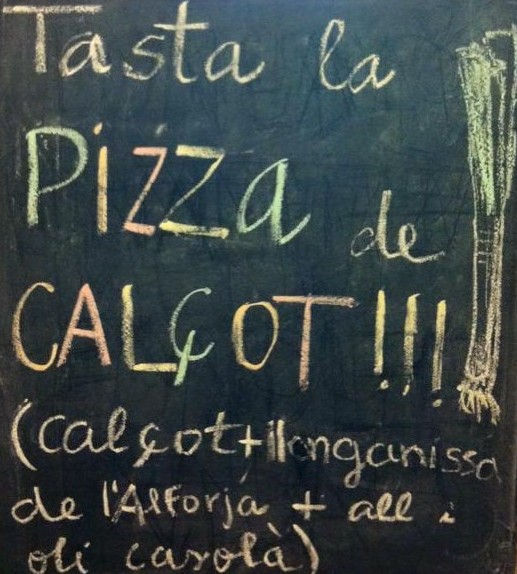 Tasta la
PIZZa de
CALÇOT!!!
(calçot+llonganissa
de l'Alforja + all i
oli casolà)